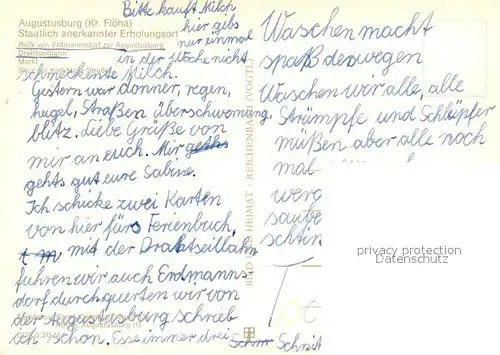 Bitte kauft Milch
Augustusburg (Kr. Flöha)
Staatlich anerkannter Erholungsort
hier gibs
nur einmal
Blick von Erdmannsdorf zur Augustusburg
Drahtseilbahn
in der Woche nicht
Markt
schmeckente Milch.
Gestern war donner, regen,
hagel, Straßen überschwemung,
blitz. Liebe Grüße von
mir an euch. Mir
gehts gut eure Sabine.
Ich schicke zwei Karten
von hier fürs Ferienbuch,
mit der Drahtseillbahn
fuhren wir auch Erdmanns-
dorf durchquerten wir von
der Augustusburg schrieb
ich schon. Esse immer drei
Schnit
BILD UND HEIMAT · REICHENBACH (VOGTL)
Waschen macht
spaß deswegen
Waschen wir alle, alle
Strümpfe und Schlüpfer
müßen aber alle noch
mal
werd
saube
privacy protection
Datenschutz